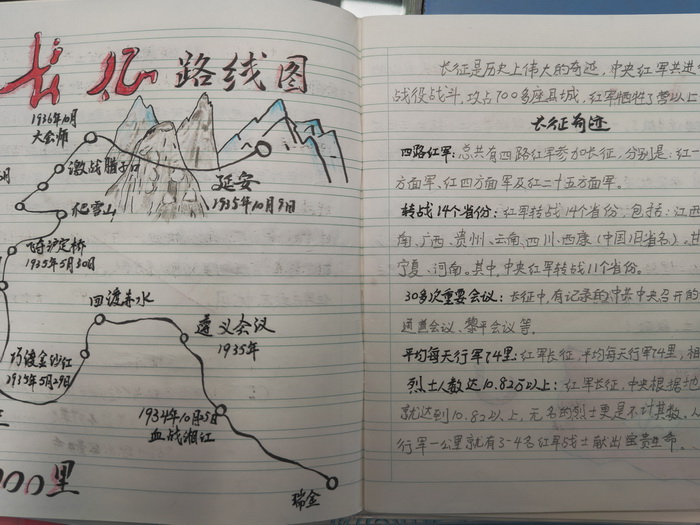 长征路线图
1936年10月
大会师
激战腊子口
月
爬雪山
延安
1935年10月9日
飞夺泸定桥
1935年5月30日
四渡赤水
遵义会议
1935年
巧渡金沙江
1935年5月29日
1934年10月5日
血战湘江
瑞金
000里
长征是历史上伟大的奇迹,中央红军共进
战役战斗,攻占700多座县城,红军牺牲了营以上
长征奇迹
四路红军:总共有四路红军参加长征,分别是:红一
方面军、红四方面军及红二十五方面军。
转战14个省份:红军转战14个省份,包括:江西
南、广西、贵州、云南、四川、西康(中国旧省名)、甘
宁夏、河南。其中,中央红军转战11个省份。
30多次重要会议:长征中,有记录的中共中央召开的
通道会议、黎平会议等。
平均每天行军74里:红军长征,平均每天行军74里,相
烈士人数达10.82万以上:红军长征,中央根据地
就达到10.82以上,无名的烈士更是不计其数,人
行军一公里就有3-4名红军战士献出宝贵生命。